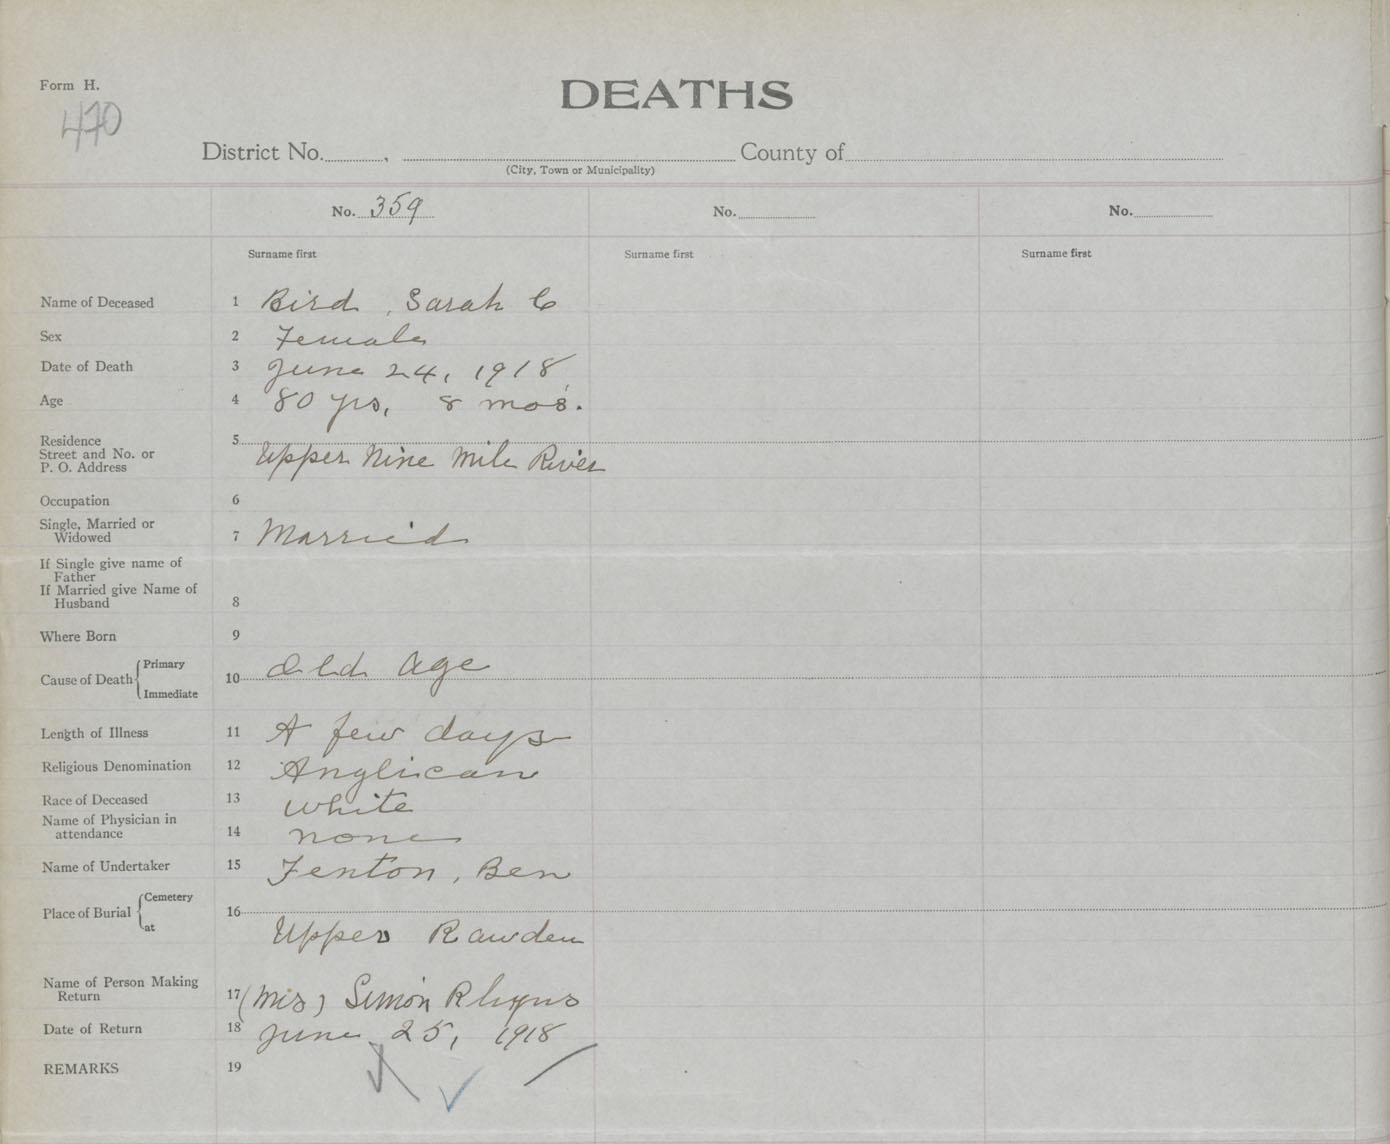 Form H.
DEATHS
470
District No. , County of
(City, Town or Municipality)
No. 359 No. No.
Surname first Surname first Surname first
Name of Deceased 1 Bird, Sarah C
Sex 2 Female
Date of Death 3 June 24, 1918
Age 4 80 yrs, 8 mos.
Residence
Street and No. or
P. O. Address 5 Upper Nine Mile River
Occupation 6
Single, Married or
Widowed 7 Married
If Single give name of
Father
If Married give Name of
Husband 8
Where Born 9
Cause of Death { Primary
Immediate 10 Old Age
Length of Illness 11 A few days
Religious Denomination 12 Anglican
Race of Deceased 13 White
Name of Physician in
attendance 14 none
Name of Undertaker 15 Fenton, Ben
Place of Burial { Cemetery
at 16 Upper Rawden
Name of Person Making
Return 17 (Mrs) Simon
Date of Return 18 June 25, 1918
REMARKS 19